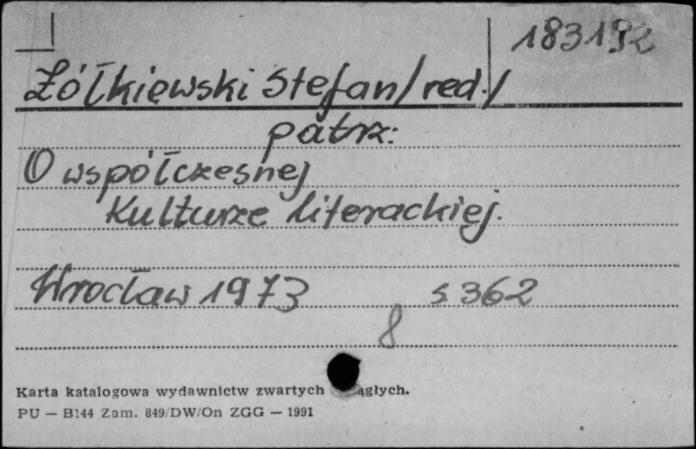 183192
Żółkiewski Stefan/red./
patrz:
O współczesnej
Kulturze literackiej.
Wrocław 1973 s 362
8
Karta katalogowa wydawnictw zwartych ągłych.
PU — B144 Zam. 849/DW/On ZGG — 1991